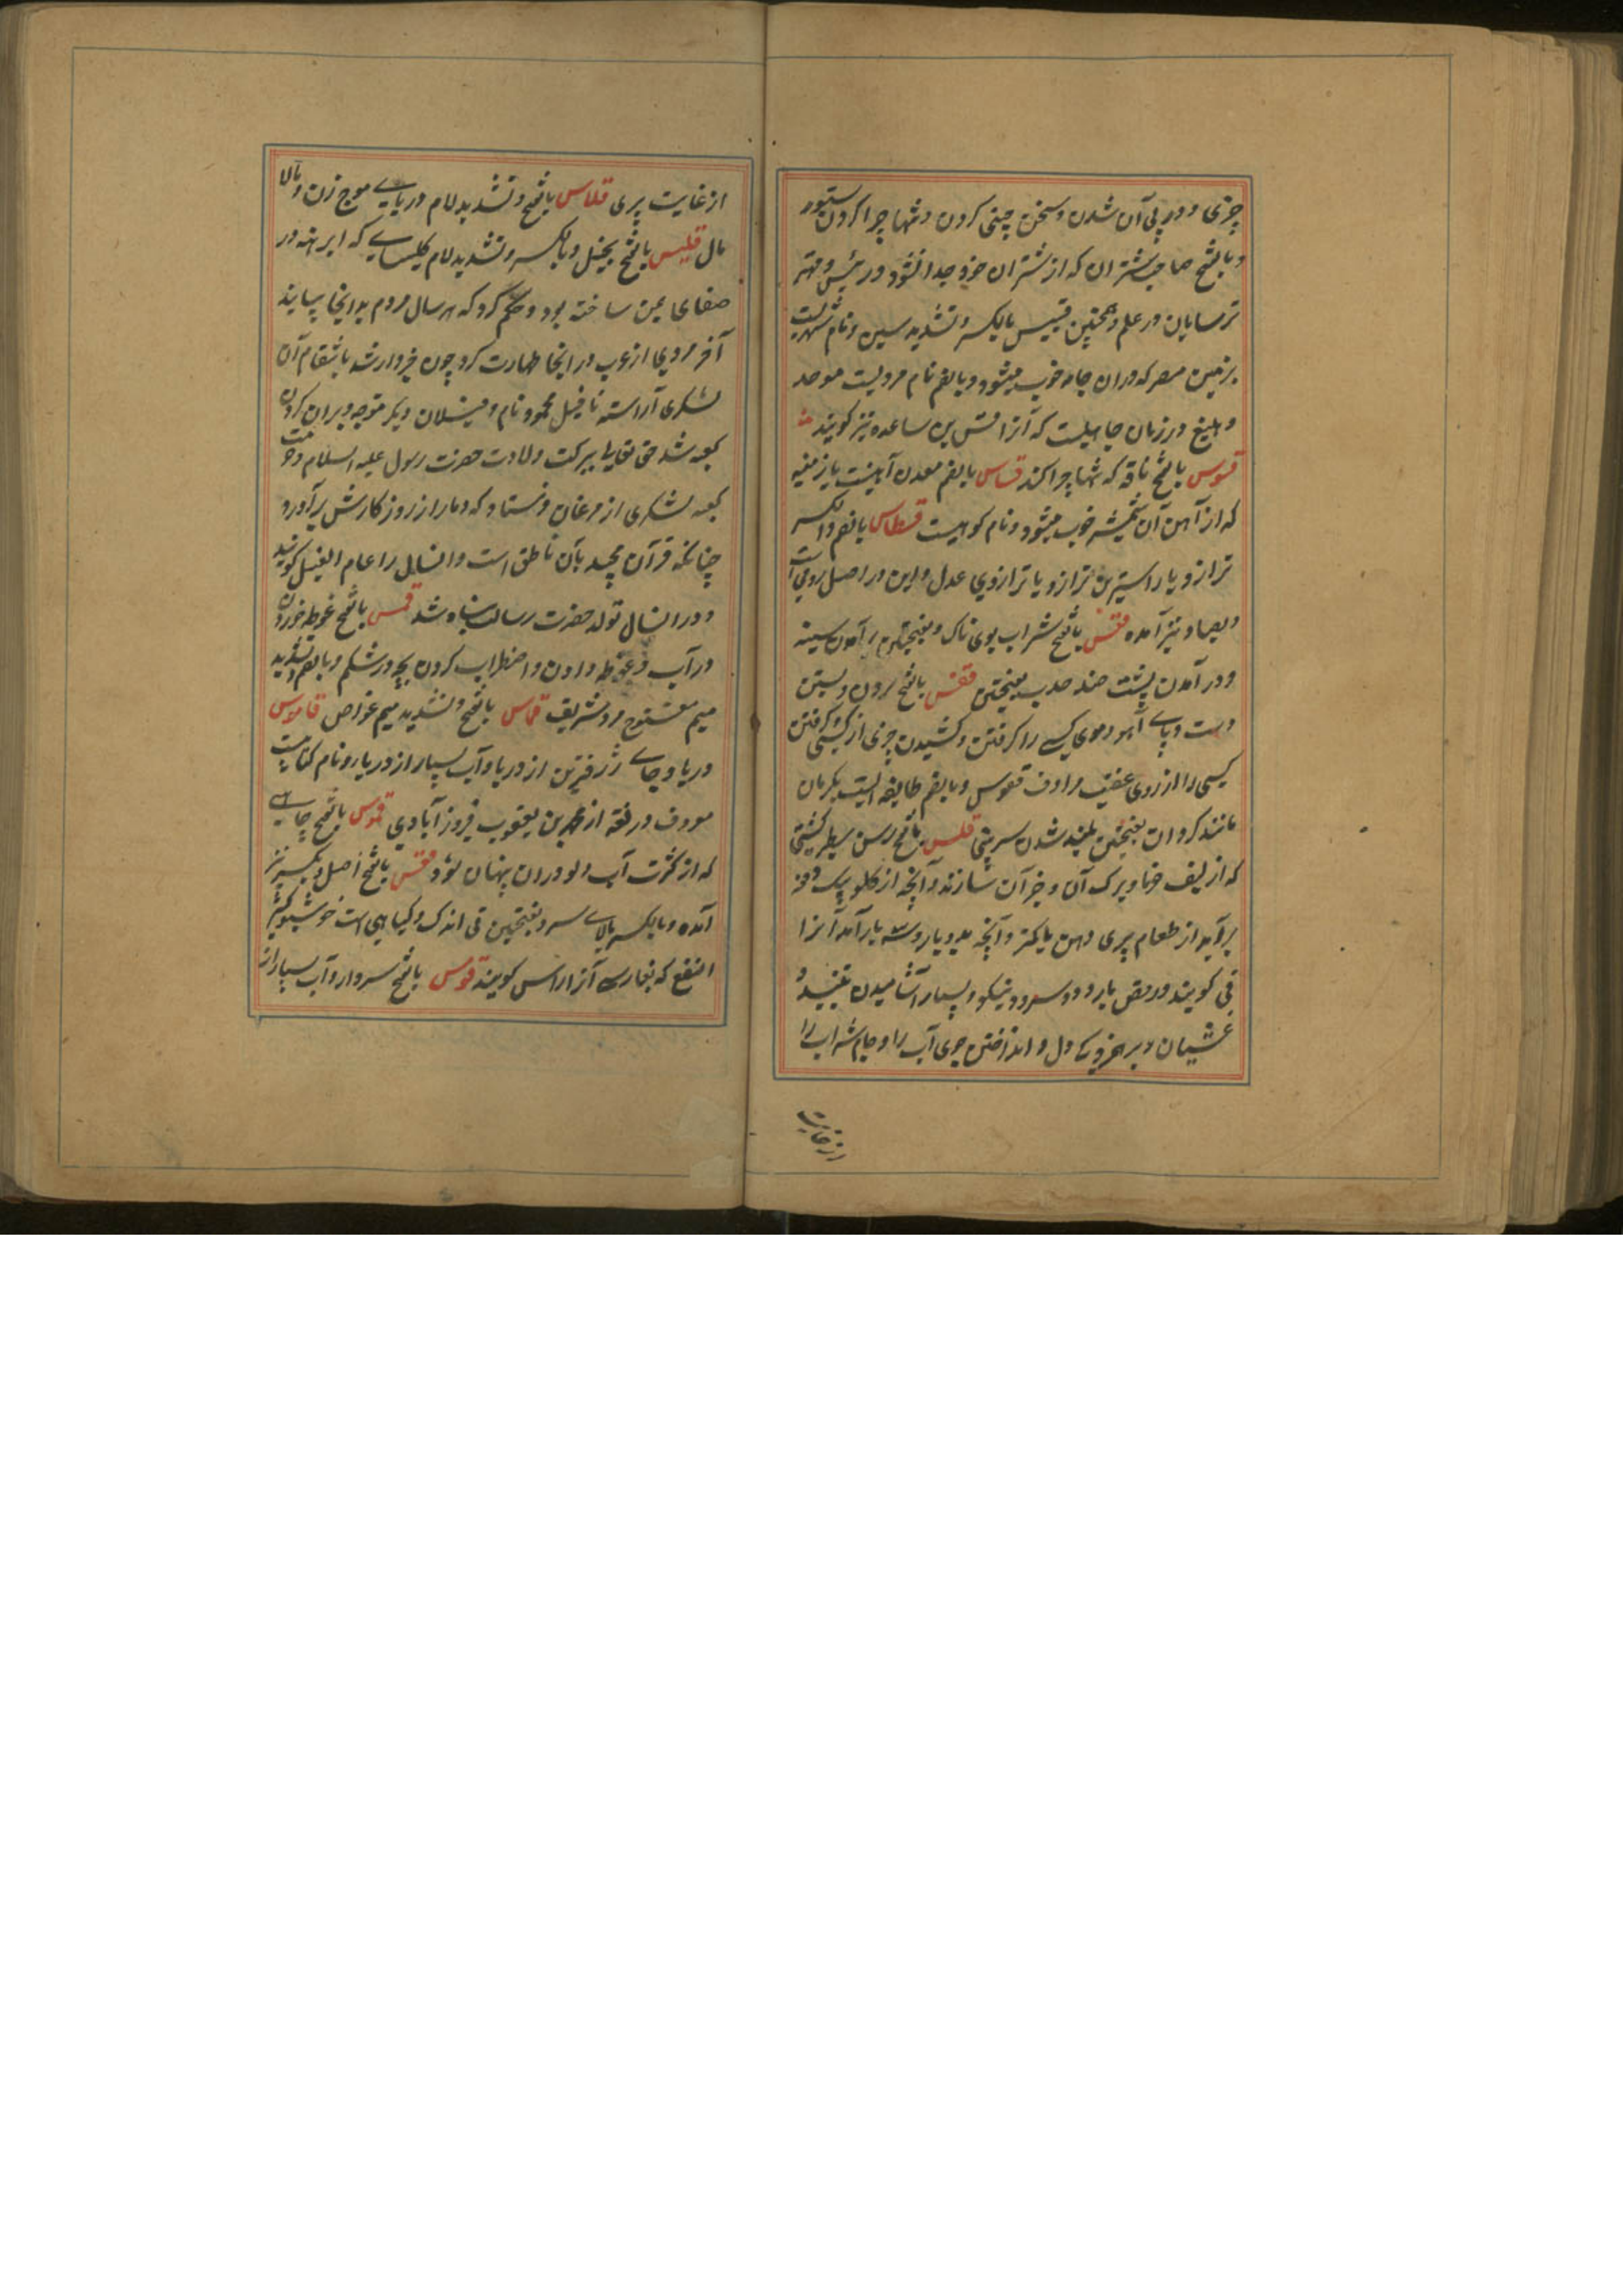 چیزی و در پی آن شدن و سخن چینی کردن و شبها چرا کردن ستور
و بالفتح صاحب شتران که از شتران خود جدا نشود و رئیس و مهتر
ترسایان در علم و همچنین قسیس بالکسر و تشدید سین و نام شهریست
بزمین مصر که دران جامه خوب میشود و بالضم نام مردیست موحد
و بلیغ در زمان جاهلیت که آنرا قس بن ساعده نیز گویند
قسوس بالفتح ناقه که تنها چرا کند قساس بالضم معدن آهنیست بارمنیه
که از آهن آن شمشیر خوب میشود و نام کوهیست قسطاس بالضم و الکسر
ترازو یا راسترین ترازو یا ترازوی عدل و این در اصل رومی است
و بصاد نیز آمده قفس بالفتح شراب بوی ناک و بفتحتین برآمدن سینه
و در آمدن پشت ضد حدب بفتحتین قفس بالفتح مردن و بستن
دست و پای آهو و موی کسی را گرفتن و کشیدن چیزی از کسی و گرفتن
کسی را از روی غضب مرادف قفوس و بالضم طایفه ایست بکرمان
مانند کردان بفتحتین بلند شدن سر بینی قلس بالفتح رسن سطبر کشتی
که از لیف خرما و برگ آن و جز آن سازند و آنچه از گلو یک دفعه
برآید از طعام پری دهن یا کمتر و آنچه بدو بار و سه بار آمد آنرا
قی گویند و رقص با سرود و سرود نیکو و بسیار آشامیدن نبیذ و
غثیان و بر هم خوردگی دل و انداختن جوی آب را و جام شراب را
از غایت
از غایت پری قلاس بالفتح و تشدید لام دریای موج زن و مالا
مال قلیس بالفتح بخیل و بالکسر و تشدید لام کلیسای که ابرهه در
صنعای یمن ساخته بود و حکم کرد که هر سال مردم بدانجا بیایند
آخر مردی از عرب در انجا طهارت کرد چون خبردار شد بانتقام آن
لشکری آراسته با فیل محمود نام و فیلان دیگر متوجه ویران کردن
کعبه شد حق تعالی ببرکت ولادت حضرت رسول علیه السلام و حرمت
کعبه لشکری از مرغان فرستاد که دمار از روزگارش برآورد
چنانکه قرآن مجید بآن ناطق است و انسال را عام الفیل گویند
و در انسال تولد حضرت رسالت پناه شد قمس بالفتح غوطه خوردن
در آب و غوطه دادن و اضطراب کردن بچه در شکم و بالضم و تشدید
میم مفتوح مرد شریف قماس بالفتح و تشدید میم غواص قاموس
دریا و جای ژرف ترین از دریا و آب بسیار از دریا و نام کتابیست
معروف در لغة از محمد بن یعقوب فیروزآبادی قموس بالفتح چاهی
که از کثرت آب دلو دران پنهان شود قنس بالفتح اصل و بکسر نیز
آمده و بالکسر بالای سر و بفتحتین قی اندک و گیاهی است خوشبو کثیر
النفع که بفارسی آنرا راسن گویند قنوس بالفتح سردار و آب بسیار از